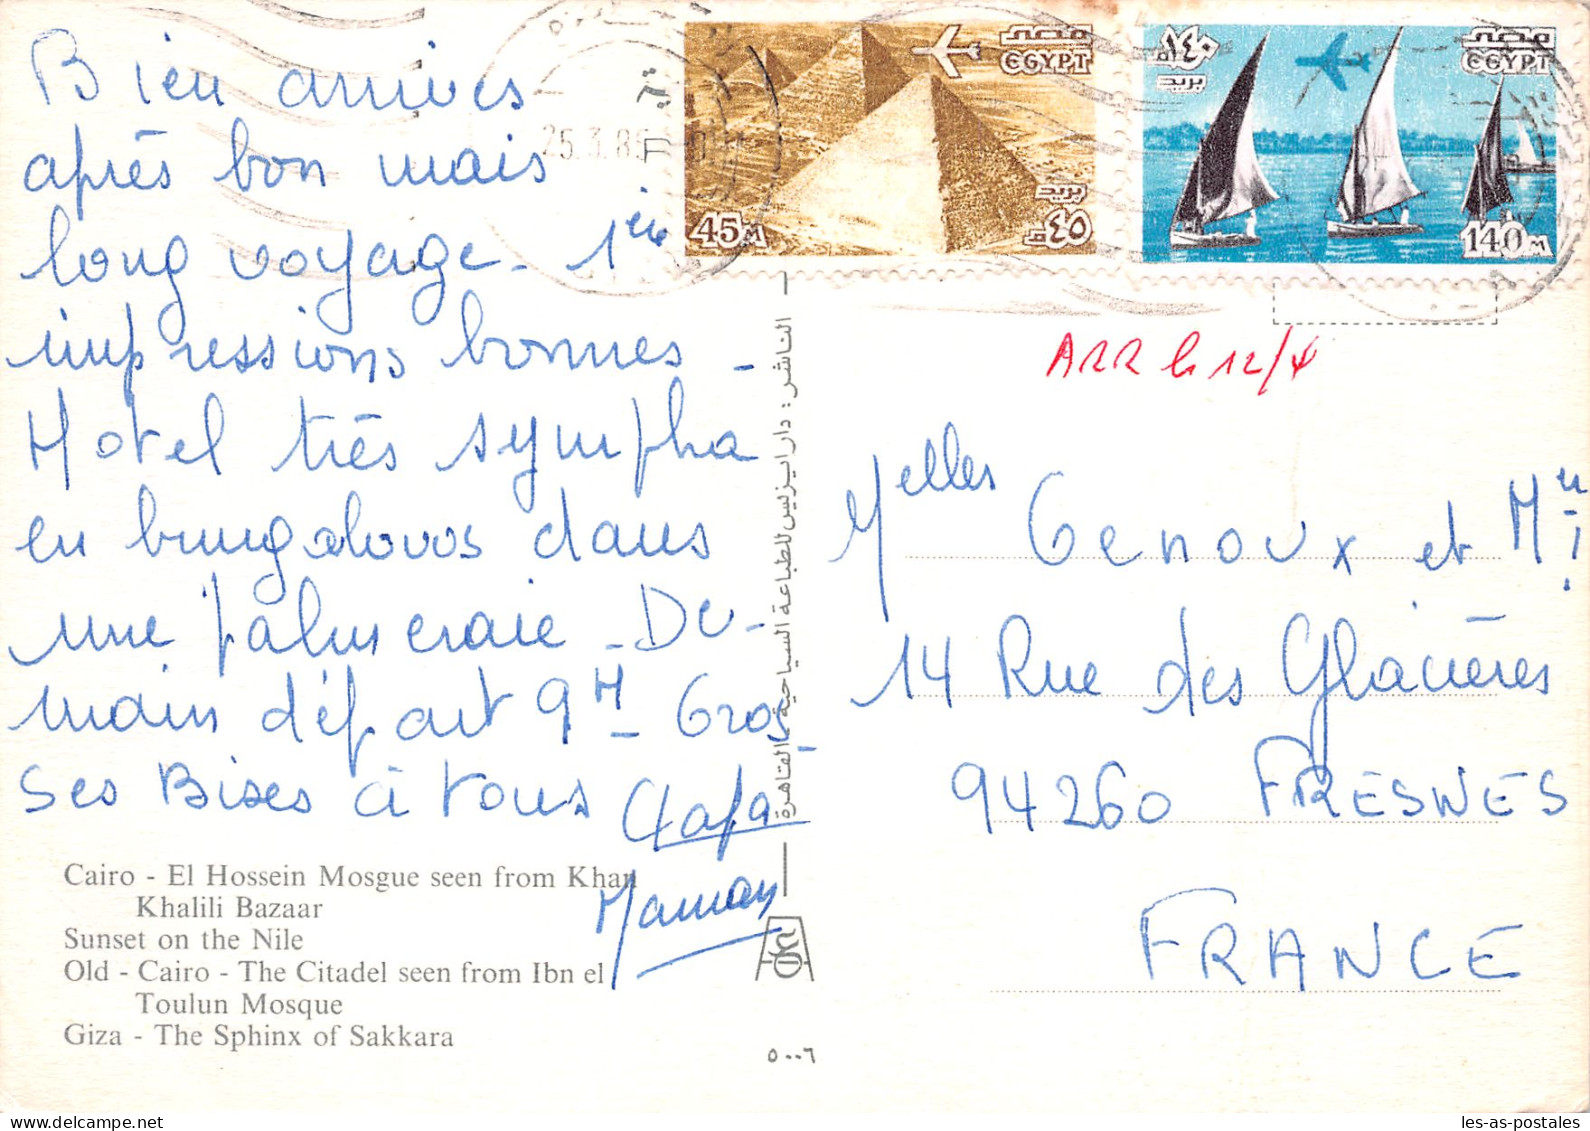 Bien arrivés
après bon mais
long voyage. 1ère
impressions bonnes -
Hotel très sympha
en bungalows dans
une palmeraie - De-
main départ 9H - Gros-
ses Bises à tous
Maman
Cairo - El Hossein Mosgue seen from Khan
Khalili Bazaar
Sunset on the Nile
Old - Cairo - The Citadel seen from Ibn el
Toulun Mosque
Giza - The Sphinx of Sakkara
25.3.8
مصر
EGYPT
بريد
45M
٤٥
١٤٠
بريد
مصر
EGYPT
140M
الناشر : دار ايزيس للطباعة السياحية - القاهرة
٥٠٠٦
ARR le 12/4
Melles Genoux et Mr
14 Rue des Glacières
94260 FRESNES
FRANCE
les-as-postales.com